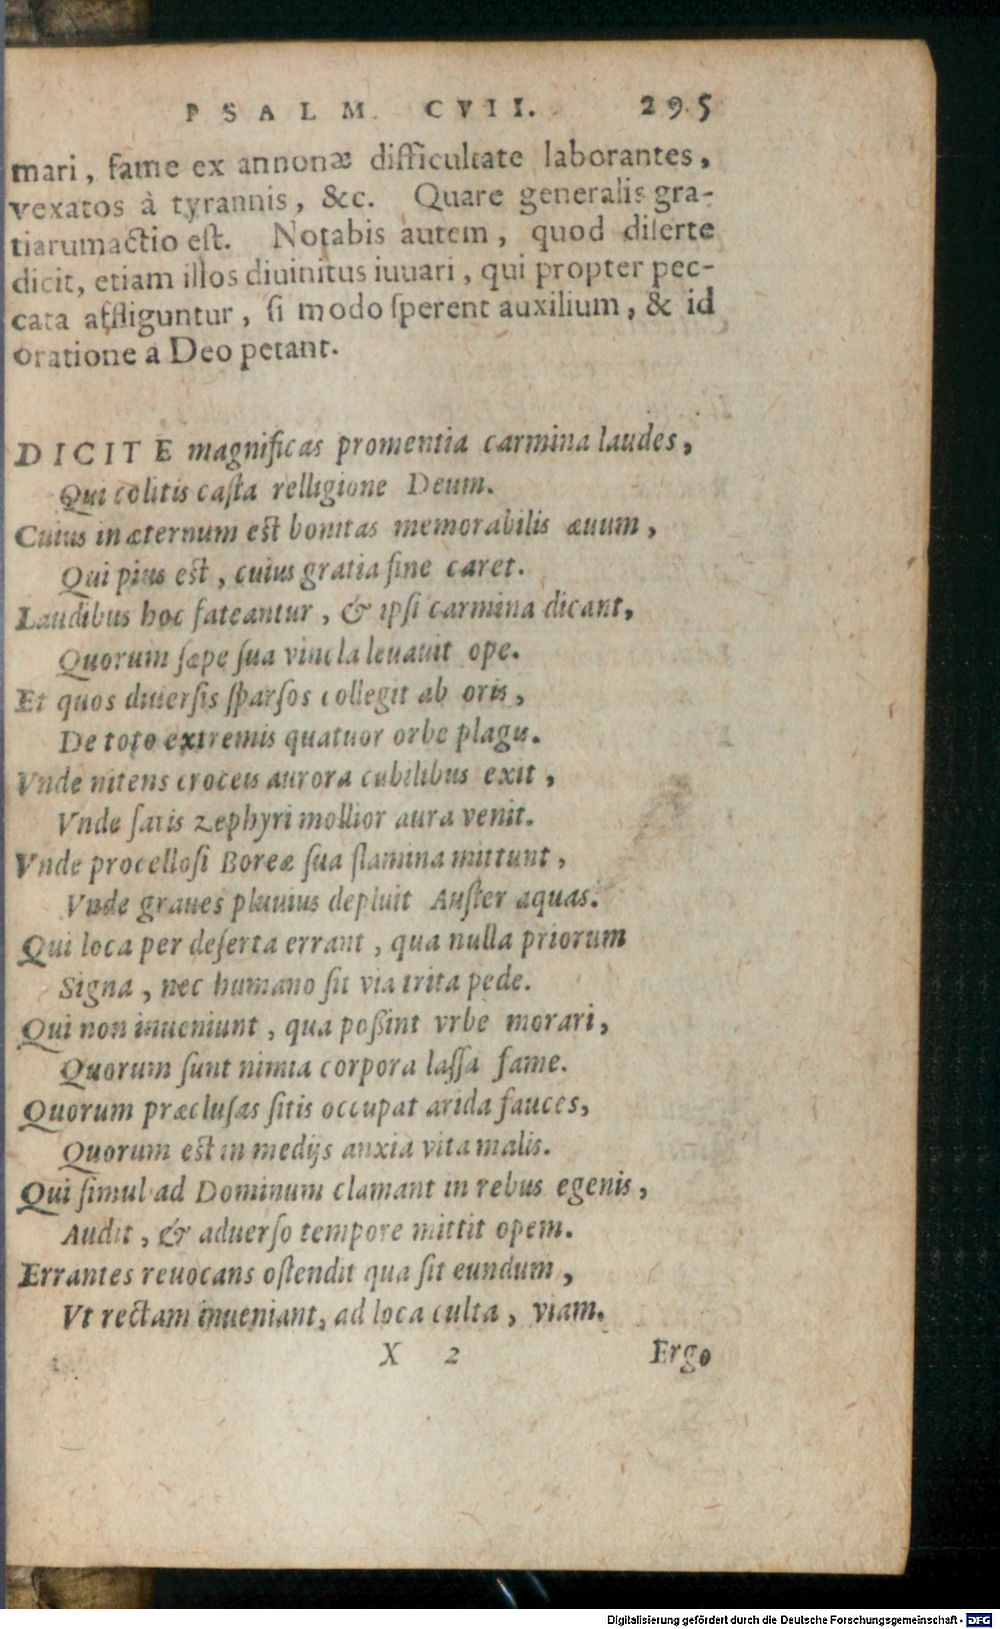 PSALM. CVII. 295
mari, fame ex annonæ difficultate laborantes,
vexatos à tyrannis, &c. Quare generalis gra-
tiarumactio eſt. Notabis autem, quod diſerte
dicit, etiam illos diuinitus iuuari, qui propter pec-
cata affliguntur, ſi modo ſperent auxilium, & id
oratione à Deo petant.
DICITE magnificas promentia carmina laudes,
Qui colitis caſta relligione Deum.
Cuius in æternum eſt bonitas memorabilis æuum,
Qui pius eſt, cuius gratia fine caret.
Laudibus hoc fateantur, & ipſi carmina dicant,
Quorum ſæpe ſua vincla leuauit ope.
Et quos diuerſis ſparſos collegit ab oris,
De toto extremis quatuor orbe plagis.
Vnde nitens croceis aurora cubilibus exit,
Vnde ſatis zephyri mollior aura venit.
Vnde procelloſi Boreæ ſua flamina mittunt,
Vnde graues pluuius depluit Auſter aquas.
Qui loca per deſerta errant, qua nulla priorum
Signa, nec humano ſit via trita pede.
Qui non inueniunt, qua poßint vrbe morari,
Quorum ſunt nimia corpora laſſa fame.
Quorum præcluſas ſitis occupat arida fauces,
Quorum eſt in medijs anxia vita malis.
Qui ſimul ad Dominum clamant in rebus egenis,
Audit, & aduerſo tempore mittit opem.
Errantes reuocans oſtendit qua ſit eundum,
Vt rectam inueniant, ad loca culta, viam.
X 2 Ergo
Digitalisierung gefördert durch die Deutsche Forschungsgemeinschaft - DFG